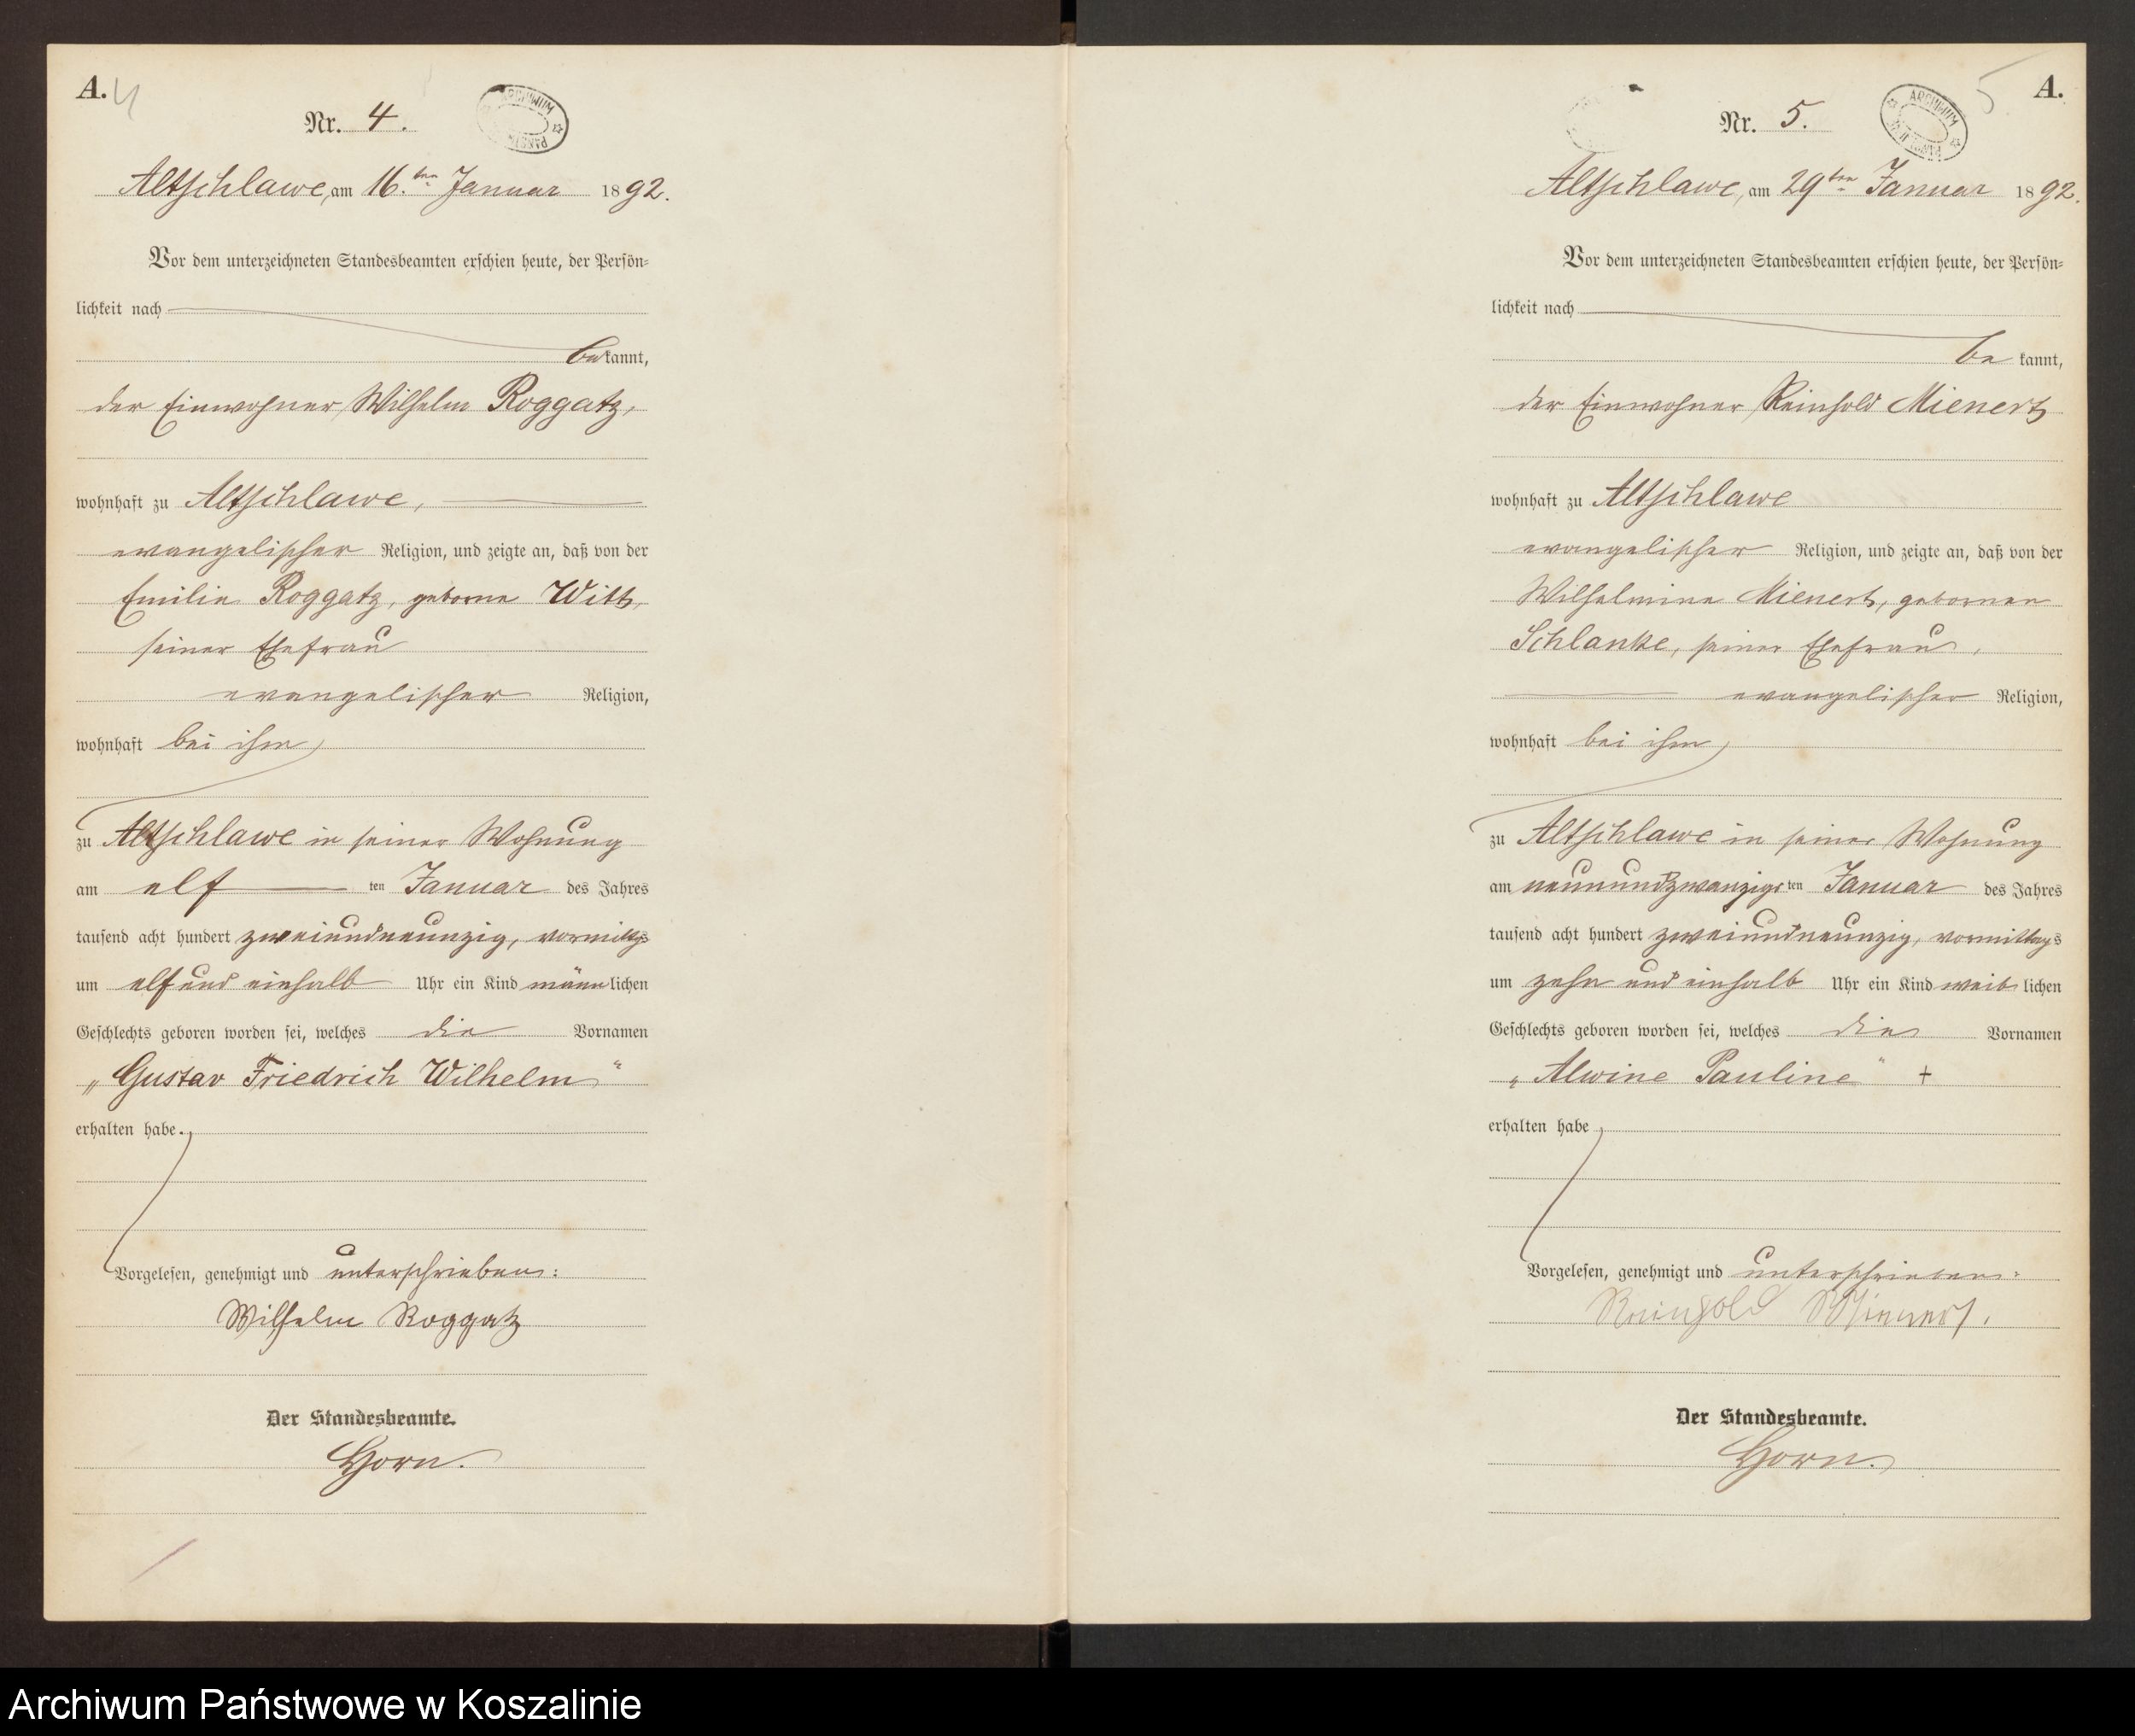 A. 4
Nr. 4.
ARCHIWUM
Altschlawe, am 16.ten Januar 1892.
Vor dem unterzeichneten Standesbeamten erschien heute, der Persön-
lichkeit nach
bekannt,
der Einwohner Wilhelm Roggatz,
wohnhaft zu Altschlawe,
evangelischer Religion, und zeigte an, daß von der
Emilie Roggatz, geborne Witt,
seiner Ehefrau
evangelischer Religion,
wohnhaft bei ihm
zu Altschlawe in seiner Wohnung
am elf ten Januar des Jahres
tausend acht hundert zweiundneunzig, vormittgs
um elf und einhalb Uhr ein Kind männlichen
Geschlechts geboren worden sei, welches die Vornamen
„Gustav Friedrich Wilhelm“
erhalten habe.
Vorgelesen, genehmigt und unterschrieben:
Wilhelm Roggatz
Der Standesbeamte.
Horn.
5 A.
Nr. 5.
ARCHIWUM
Altschlawe, am 29ten Januar 1892.
Vor dem unterzeichneten Standesbeamten erschien heute, der Persön-
lichkeit nach
be kannt,
der Einwohner Reinhold Mienert
wohnhaft zu Altschlawe
evangelischer Religion, und zeigte an, daß von der
Wilhelmine Mienert, gebornen
Schlanke, seiner Ehefrau,
evangelischer Religion,
wohnhaft bei ihm
zu Altschlawe in seiner Wohnung
am neunundzwanzigsten Januar des Jahres
tausend acht hundert zweiundneunzig, vormittags
um zehn und einhalb Uhr ein Kind weiblichen
Geschlechts geboren worden sei, welches die Vornamen
„Alwine Pauline“ +
erhalten habe
Vorgelesen, genehmigt und unterschrieben:
Reinhold Mienert.
Der Standesbeamte.
Horn.
Archiwum Państwowe w Koszalinie